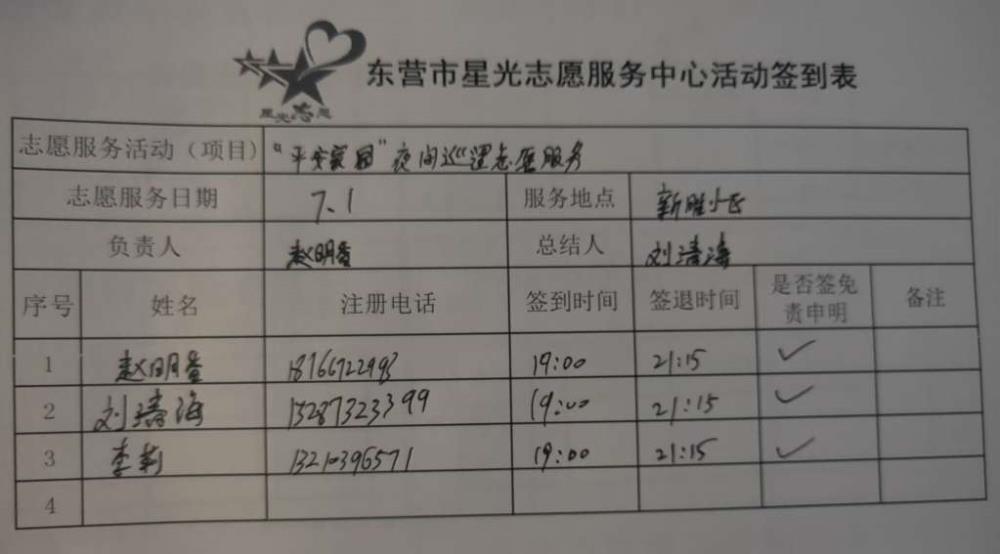 星光志愿
东营市星光志愿服务中心活动签到表
志愿服务活动（项目） “平安家园”夜间巡逻志愿服务
志愿服务日期 7.1 服务地点 新胜小区
负责人 赵明星 总结人 刘清海
序号 姓名 注册电话 签到时间 签退时间 是否签免责申明 备注
1 赵明星 19:00 21:15 ✓
2 13287323399 19:00 21:15 ✓
3 李莉 13210396571 19:00 21:15 ✓
4